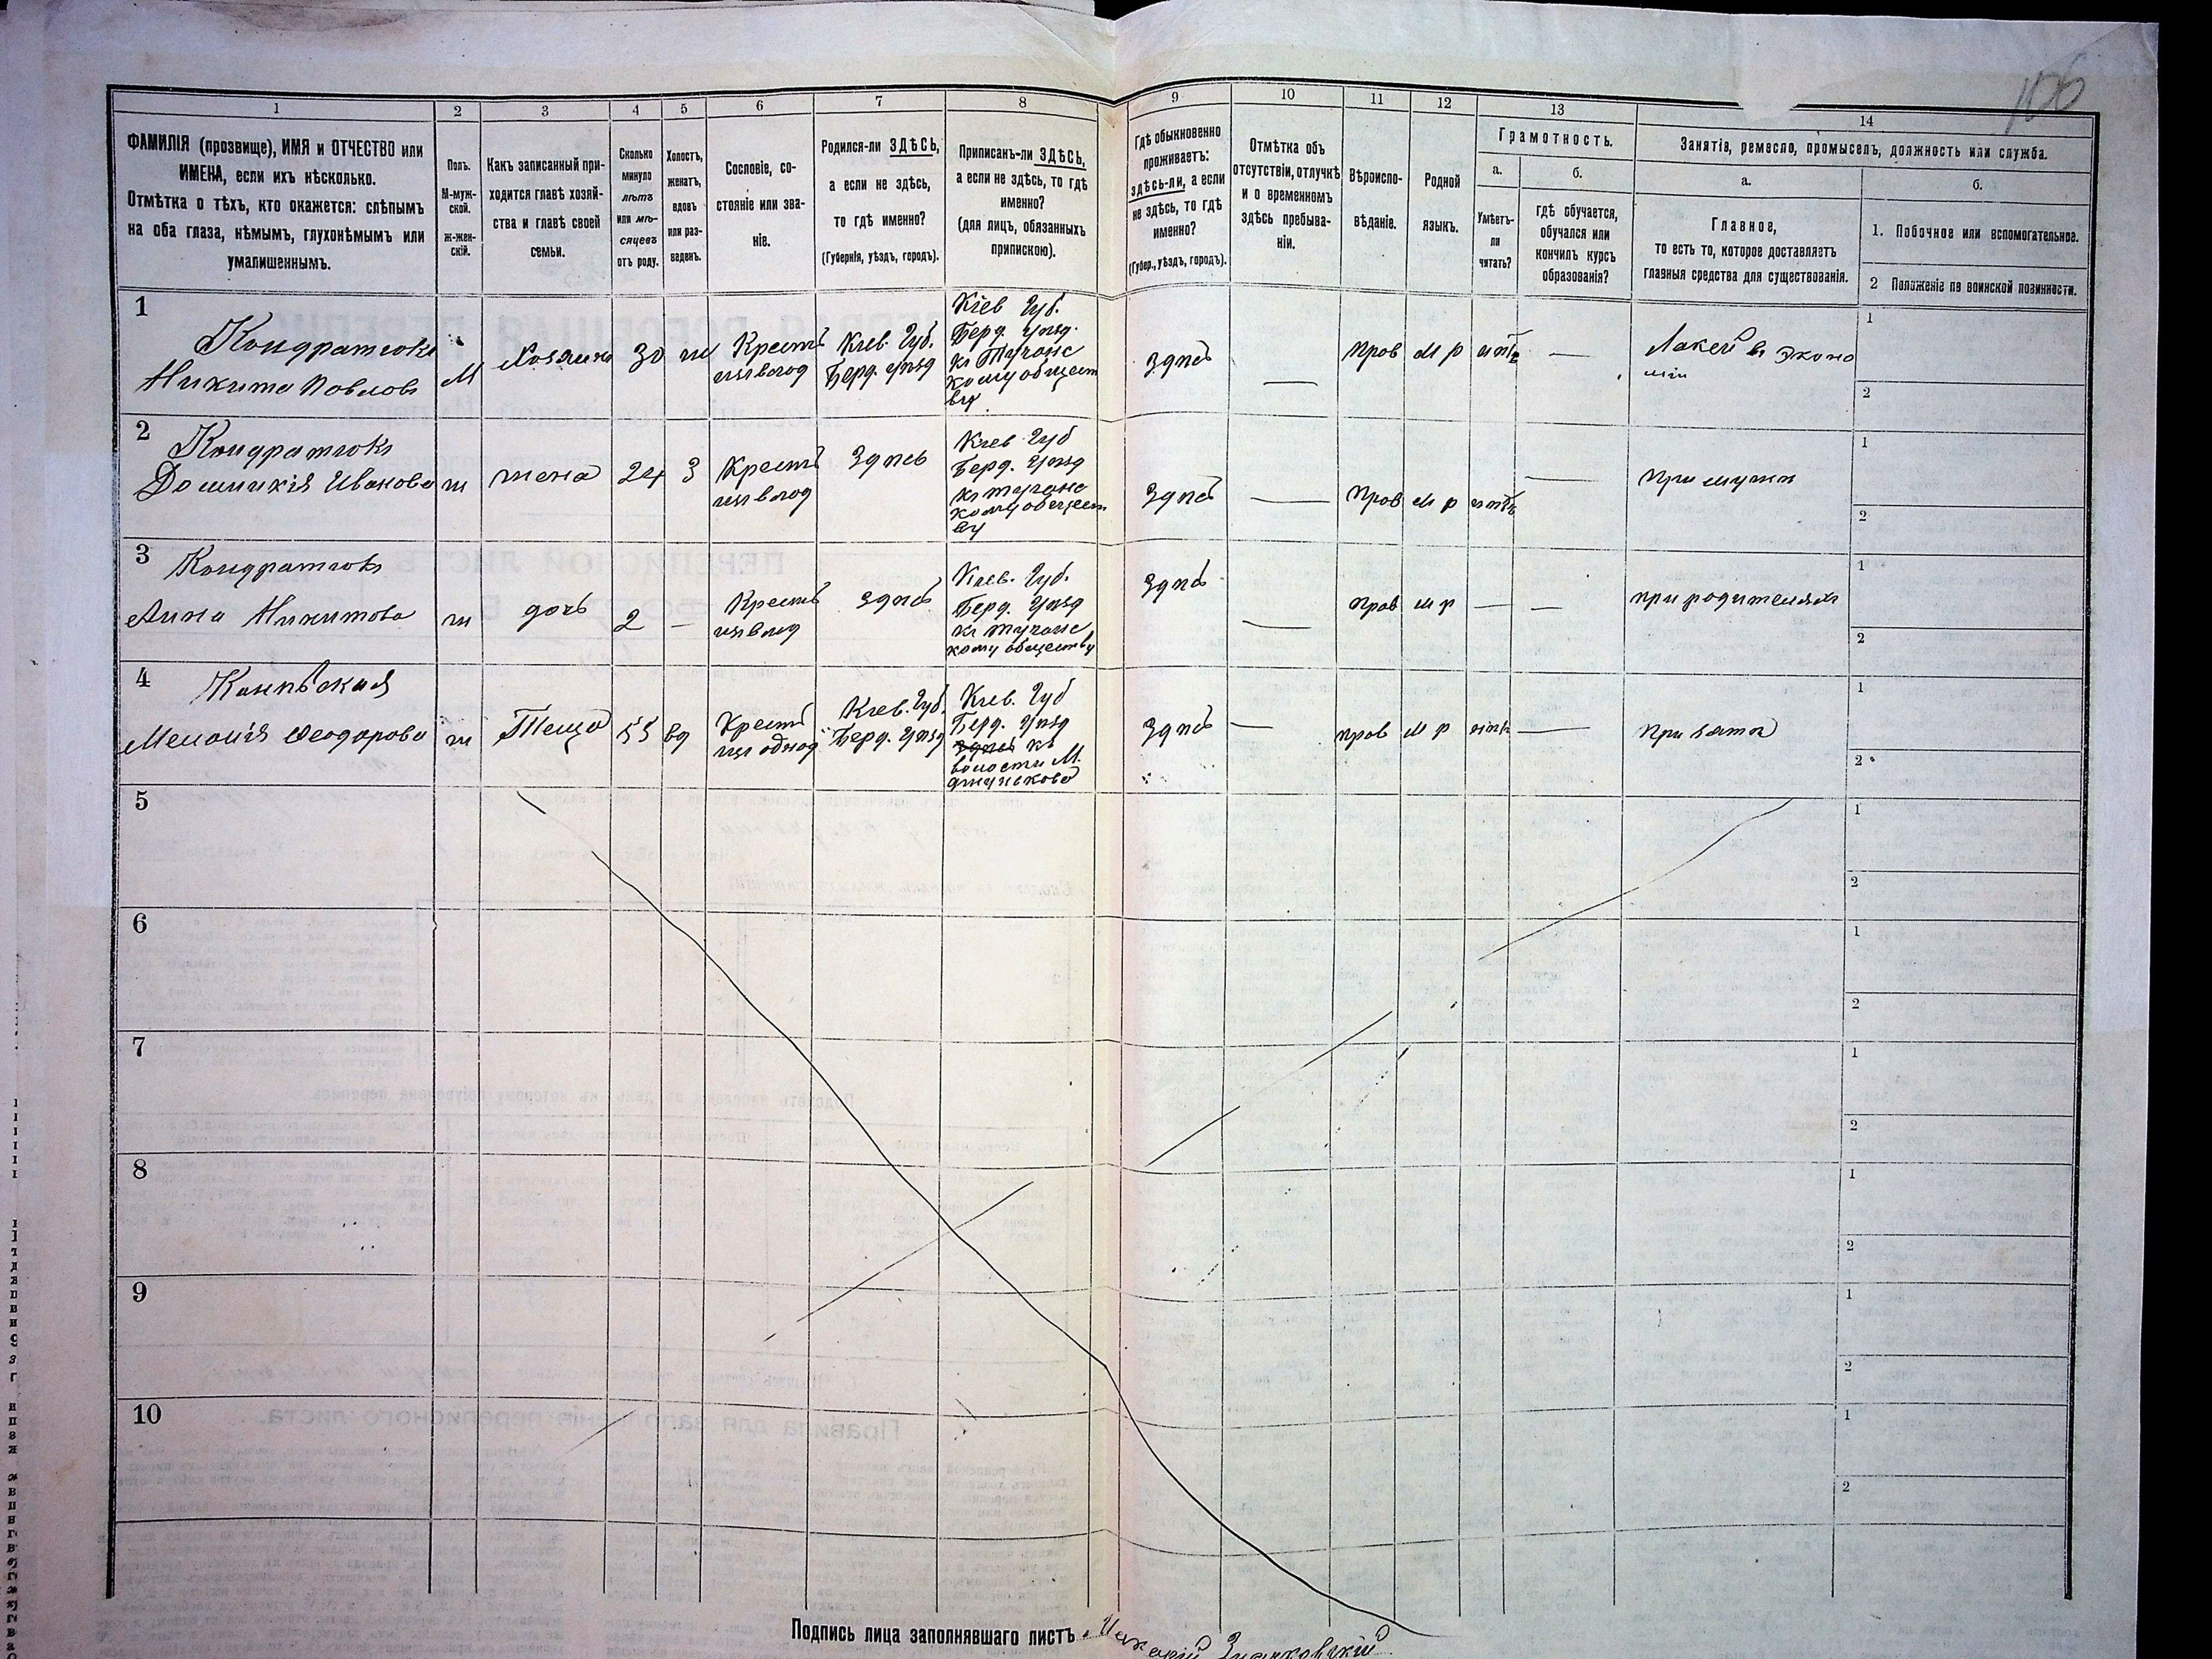 106
1 2 3 4 5 6 7 8 9 10 11 12 13 14
ФАМИЛІЯ (прозвище), ИМЯ и ОТЧЕСТВО или
ИМЕНА, если ихъ нѣсколько.
Отмѣтка о тѣхъ, кто окажется: слѣпымъ
на оба глаза, нѣмымъ, глухонѣмымъ или
умалишеннымъ.
Полъ.
М-муж-
ской.
ж-жен-
скій.
Какъ записанный при-
ходится главѣ хозяй-
ства и главѣ своей
семьи.
Сколько
минуло
лѣтъ
или мѣ-
сяцевъ
отъ роду.
Холостъ,
женатъ,
вдовъ
или раз-
веденъ.
Сословіе, со-
стояніе или зва-
ніе.
Родился-ли ЗДѢСЬ,
а если не здѣсь,
то гдѣ именно?
(Губернія, уѣздъ, городъ).
Приписанъ-ли ЗДѢСЬ,
а если не здѣсь, то гдѣ
именно?
(для лицъ, обязанныхъ
припискою).
Гдѣ обыкновенно
проживаетъ:
здѣсь-ли, а если
не здѣсь, то гдѣ
именно?
(Губер., уѣздъ, городъ).
Отмѣтка объ
отсутствіи, отлучкѣ
и о временномъ
здѣсь пребыва-
ніи.
Вѣроиспо-
вѣданіе.
Родной
языкъ.
Грамотность.
а.
Умѣетъ-
ли
читать?
б.
гдѣ обучается,
обучался или
кончилъ курсъ
образованія?
Занятія, ремесло, промыселъ, должность или служба.
а.
Главное,
то есть то, которое доставляетъ
главныя средства для существованія.
б.
1. Побочное или вспомогательное.
2 Положеніе по воинской повинности.
1
Кондратюкъ
Никита Павловъ
М
Хозяинъ
30
ж
Крест
изъ влад
Кіев. Губ.
Берд. уѣзд
Кіев Губ.
Берд. уѣзд.
здѣсь
—
прав
м р
нѣтъ
—
Лакей въ Эконо
міи
1
2
2
Кондратюкъ
Домникія Иванова
ж
жена
24
З
Крест
изъ влад
здѣсь
Кіев Губ
Берд. Уѣзд
здѣсь
—
прав
м р
нѣтъ
—
при мужѣ
1
2
3
Кондратюкъ
Анна Никитова
ж
дочь
2
—
Крест
изъ влад
здѣсь
Кіев. Губ.
Берд. Уѣзд
кому обществу
здѣсь
—
прав
м р
—
—
при родителяхъ
1
2
4
Мелания Феодорова
ж
Теща
55
вд
Крест
Кіев. Губ.
Берд. Уѣзд
Кіев. Губ
Берд. Уѣзд
здѣсь къ
волости М.
здѣсь
—
прав
м р
нѣтъ
—
при зятѣ
1
2
5
1
2
6
1
2
7
1
2
8
1
2
9
1
2
10
1
2
Подпись лица заполнявшаго листъ